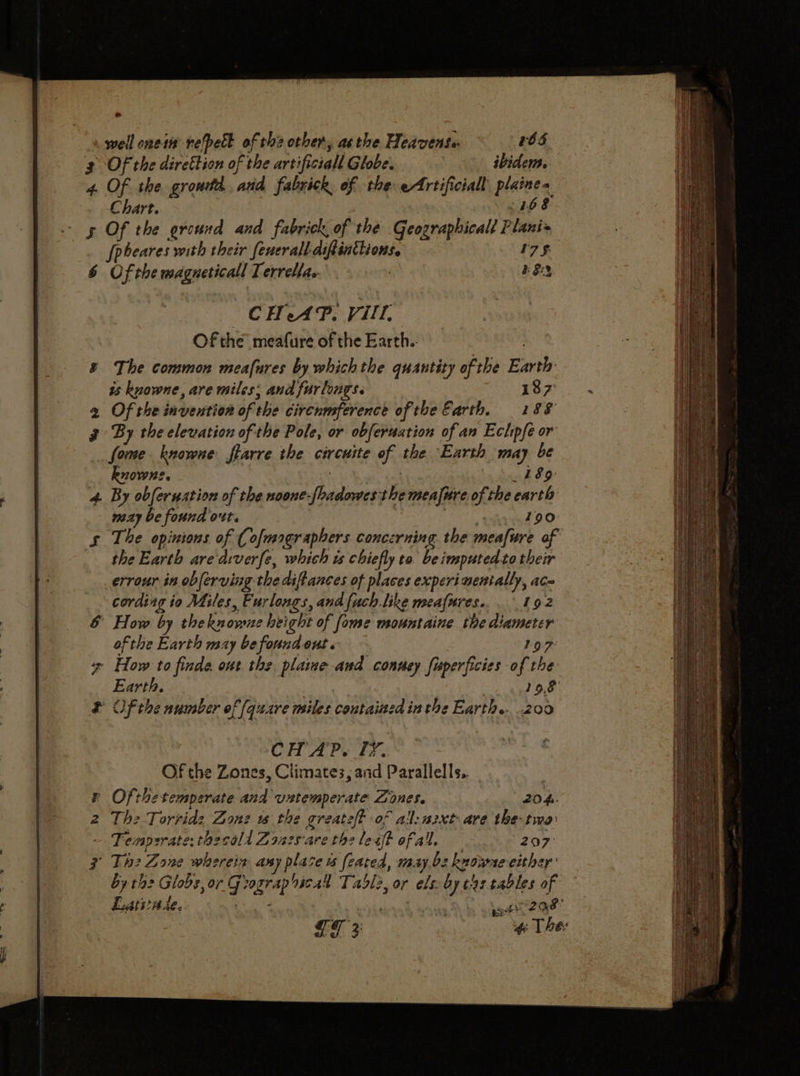 well one in respect of the other, as the Heavens. 166
3 Of the direction of the artificiall Globe. ibidem.
4 Of the ground and fabrick of the Artificiall plaine
Chart. 168
5 Of the ground and fabrick of the Geographicall Plani-
spheares with their severall distinctions. 175
6 Of the magneticall Terrella.
CHAP. VIII.
Of the measure of the Earth.
1 The common measures by which the quantity of the Earth
is knowne, are miles, and furlongs. 187
2 Of the invention of the circumference of the Earth. 188
3 By the elevation of the Pole, or observation of an Eclipse or
some knowne starre the circuite of the Earth may be
knowne. 189
4 By observation of the noone-shadowes the measure of the earth
may be found out. 190
5 The opinions of Cosmographers concerning the measure of
the Earth are diverse, which is chiefly to be imputed to their
errour in observing the distances of places experimentally, ac-
cording to Miles, Furlongs, and such like measures. 192
6 How by the knowne height of some mountaine the diameter
of the Earth may be found out. 197
7 How to finde out the plaine and convey superficies of the
Earth. 198
8 Of the number of square miles contained in the Earth. 200
CHAP. IX.
Of the Zones, Climates, and Parallells.
1 Of the temperate and untemperate Zones. 204
2 The Torride Zone is the greatest of all: next are the two
Temperate: the cold Zones are the least of all. 207
3 The Zone wherein any place is seated, may be knowne either
by the Globe, or Geographicall Table, or els by the tables of
Latitude. 208
¶¶ 3 4 The